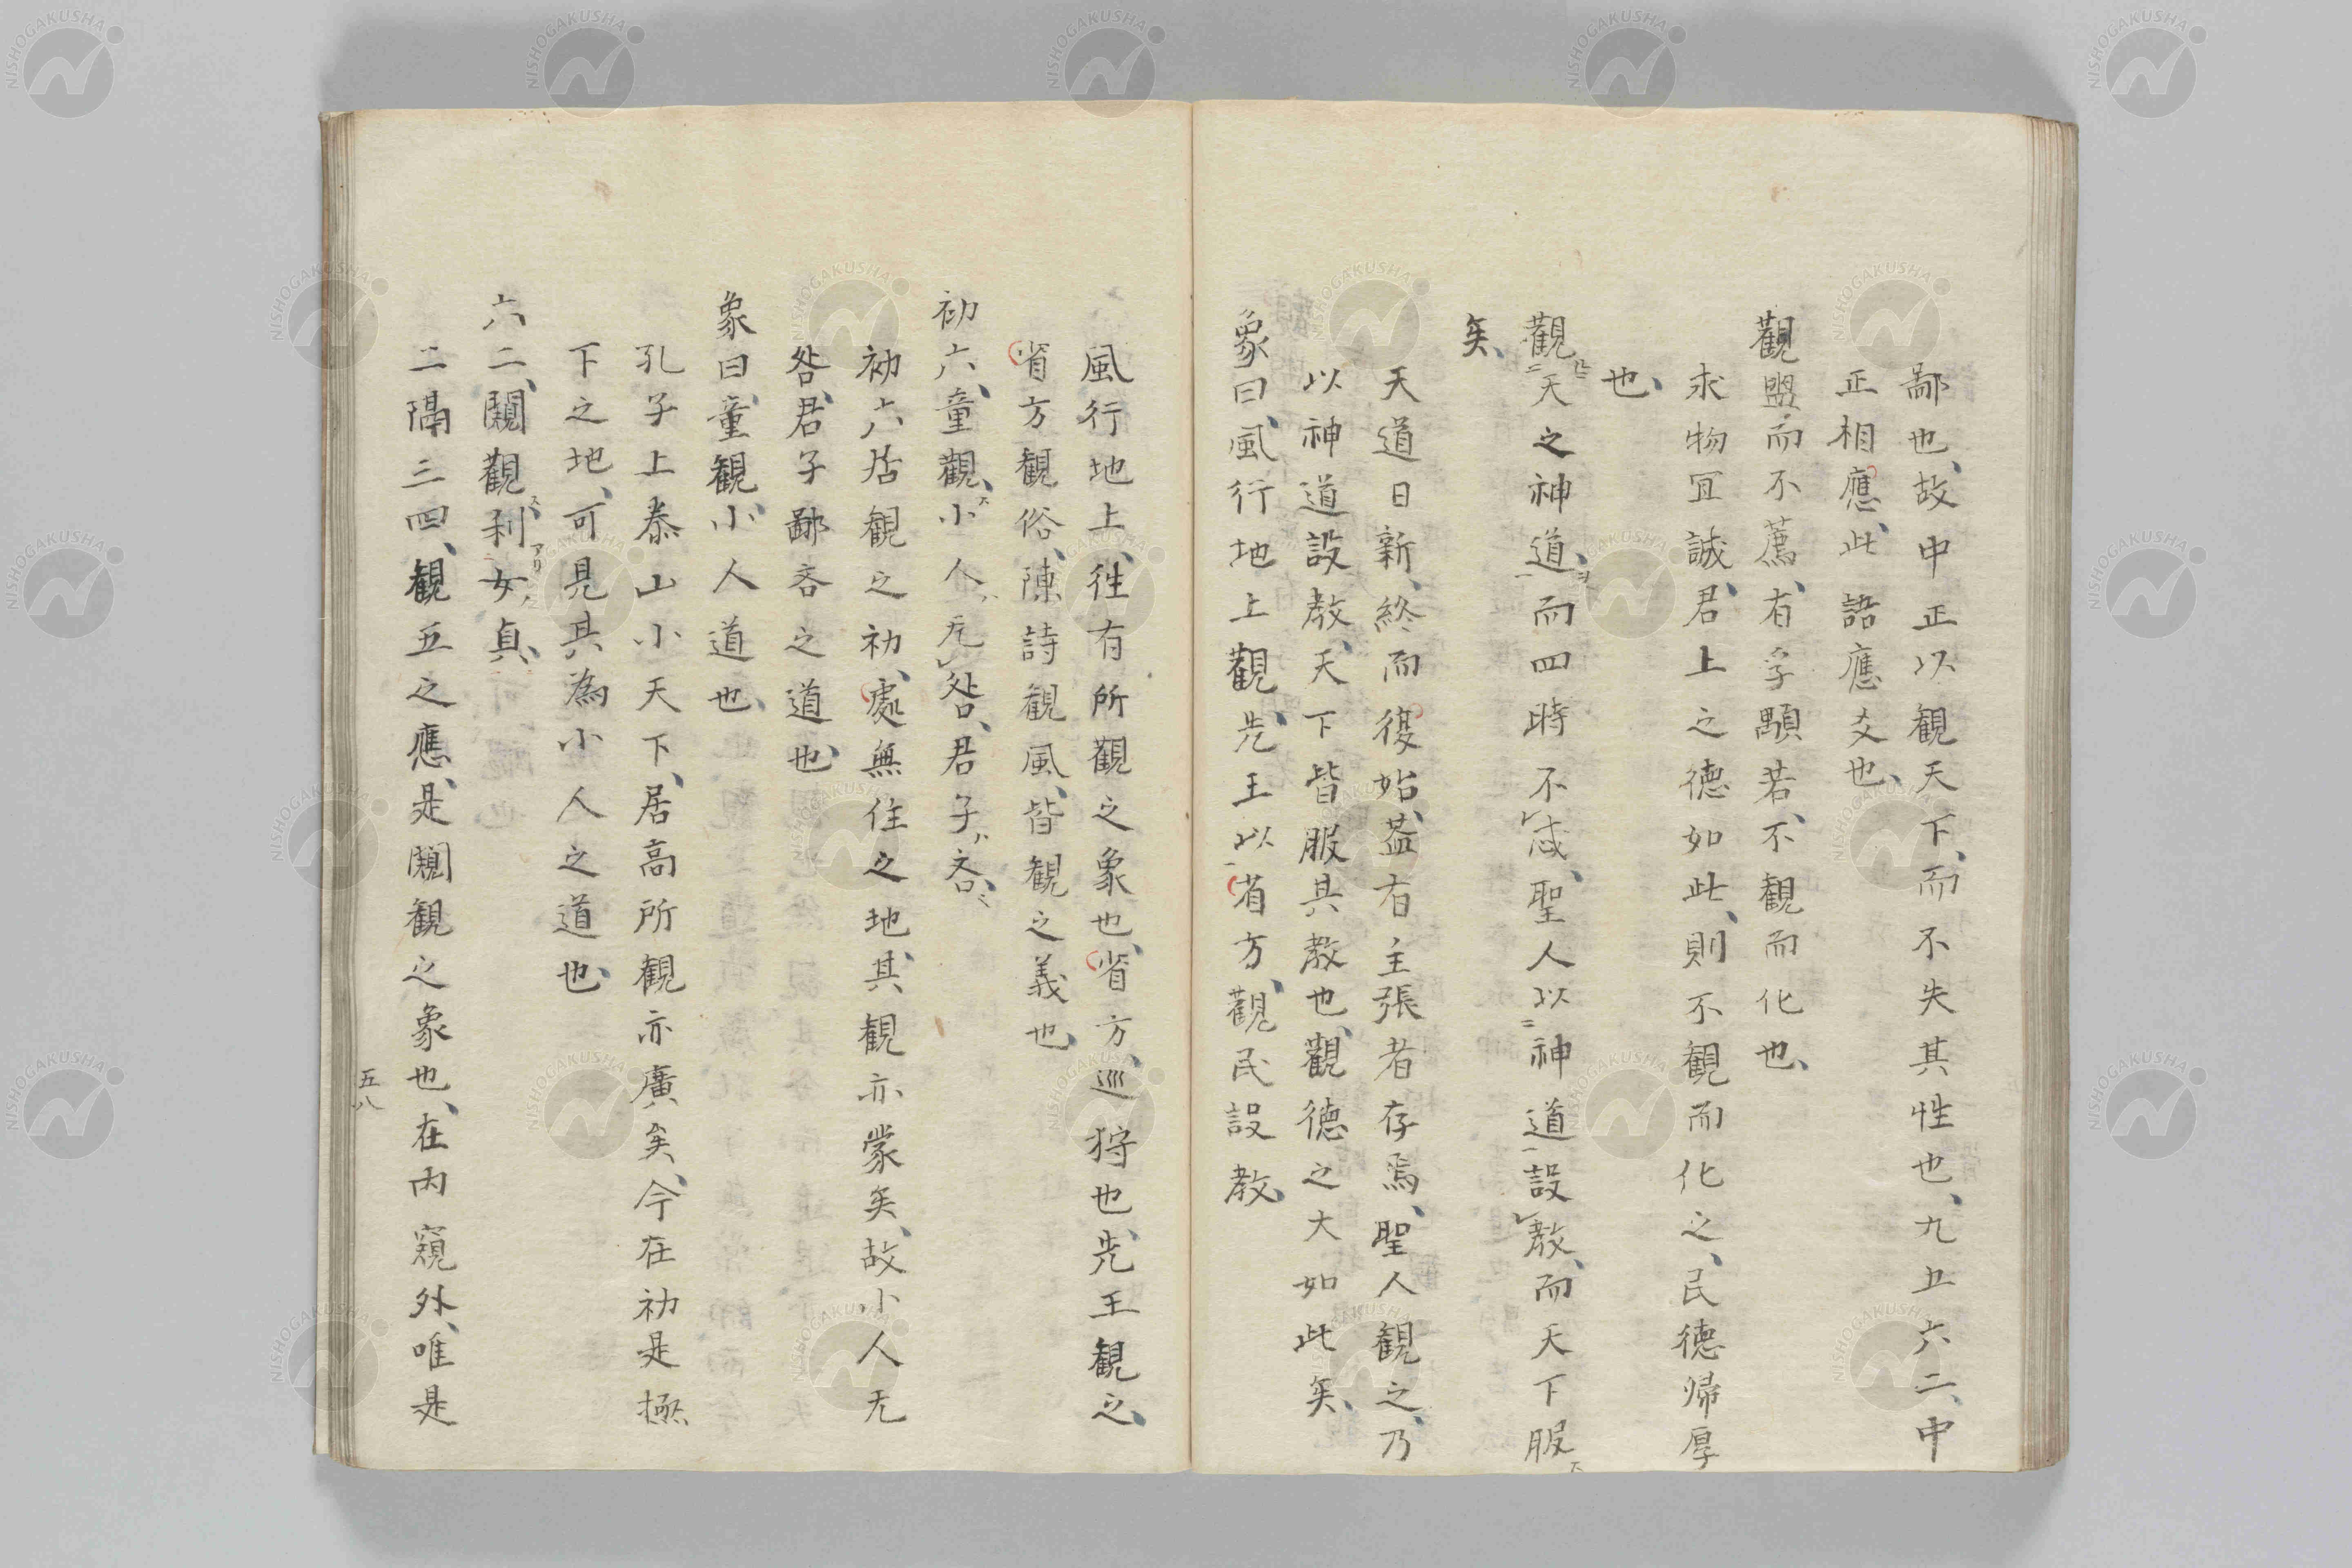 鄙也、故中正以観天下、而不失其性也、九五六二、中
正相應、此語應爻也、
觀盥而不薦、有孚顒若、不観而化也、
求物冝誠、君上之德如此、則不観而化之、民德歸厚
也、
觀天之神道、而四時不忒、聖人以神道設教、而天下服
矣、
天道日新、終而復始、蓋有主張者存焉、聖人観之、乃
以神道設教、天下皆服其教也、觀德之大如此矣、
象曰、風行地上觀、先王以省方、觀民設教、
風行地上、徃有所觀之象也、省方、巡狩也、先王観之、
省方観俗、陳詩観風、皆観之義也、
初六、童觀、小人无咎、君子吝、
初六居観之初、處無住之地、其観亦蒙矣、故小人无
咎、君子鄙吝之道也、
象曰、童観、小人道也、
孔子上泰山小天下、居高所観亦廣矣、今在初是極
下之地、可見其為小人之道也、
六二、闚觀、利女貞、
二隔三四、観五之應、是闚観之象也、在内窺外、唯是
五八
NISHOGAKUSHA